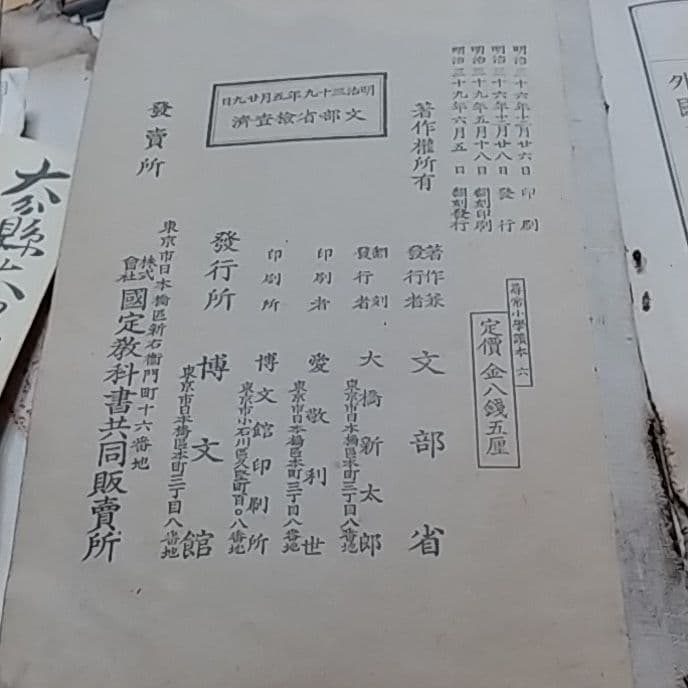 明治三十六年十二月廿六日印刷
明治三十六年十二月廿八日發行
明治三十九年五月十八日翻刻印刷
明治三十九年六月五日翻刻發行
尋常小學讀本 六
定價金八錢五厘
著作權所有
著作兼發行者 文部省
翻刻發行者 大橋新太郎
東京市日本橋區本町三丁目八番地
印刷者 愛敬利世
東京市日本橋區本町三丁目八番地
印刷所 博文館印刷所
東京市小石川區久堅町百〇八番地
明治三十九年五月廿九日
文部省檢查濟
發行所 博文館
東京市日本橋區本町三丁目八番地
發賣所
東京市日本橋區新右衞門町十六番地
株式會社 國定教科書共同販賣所
外